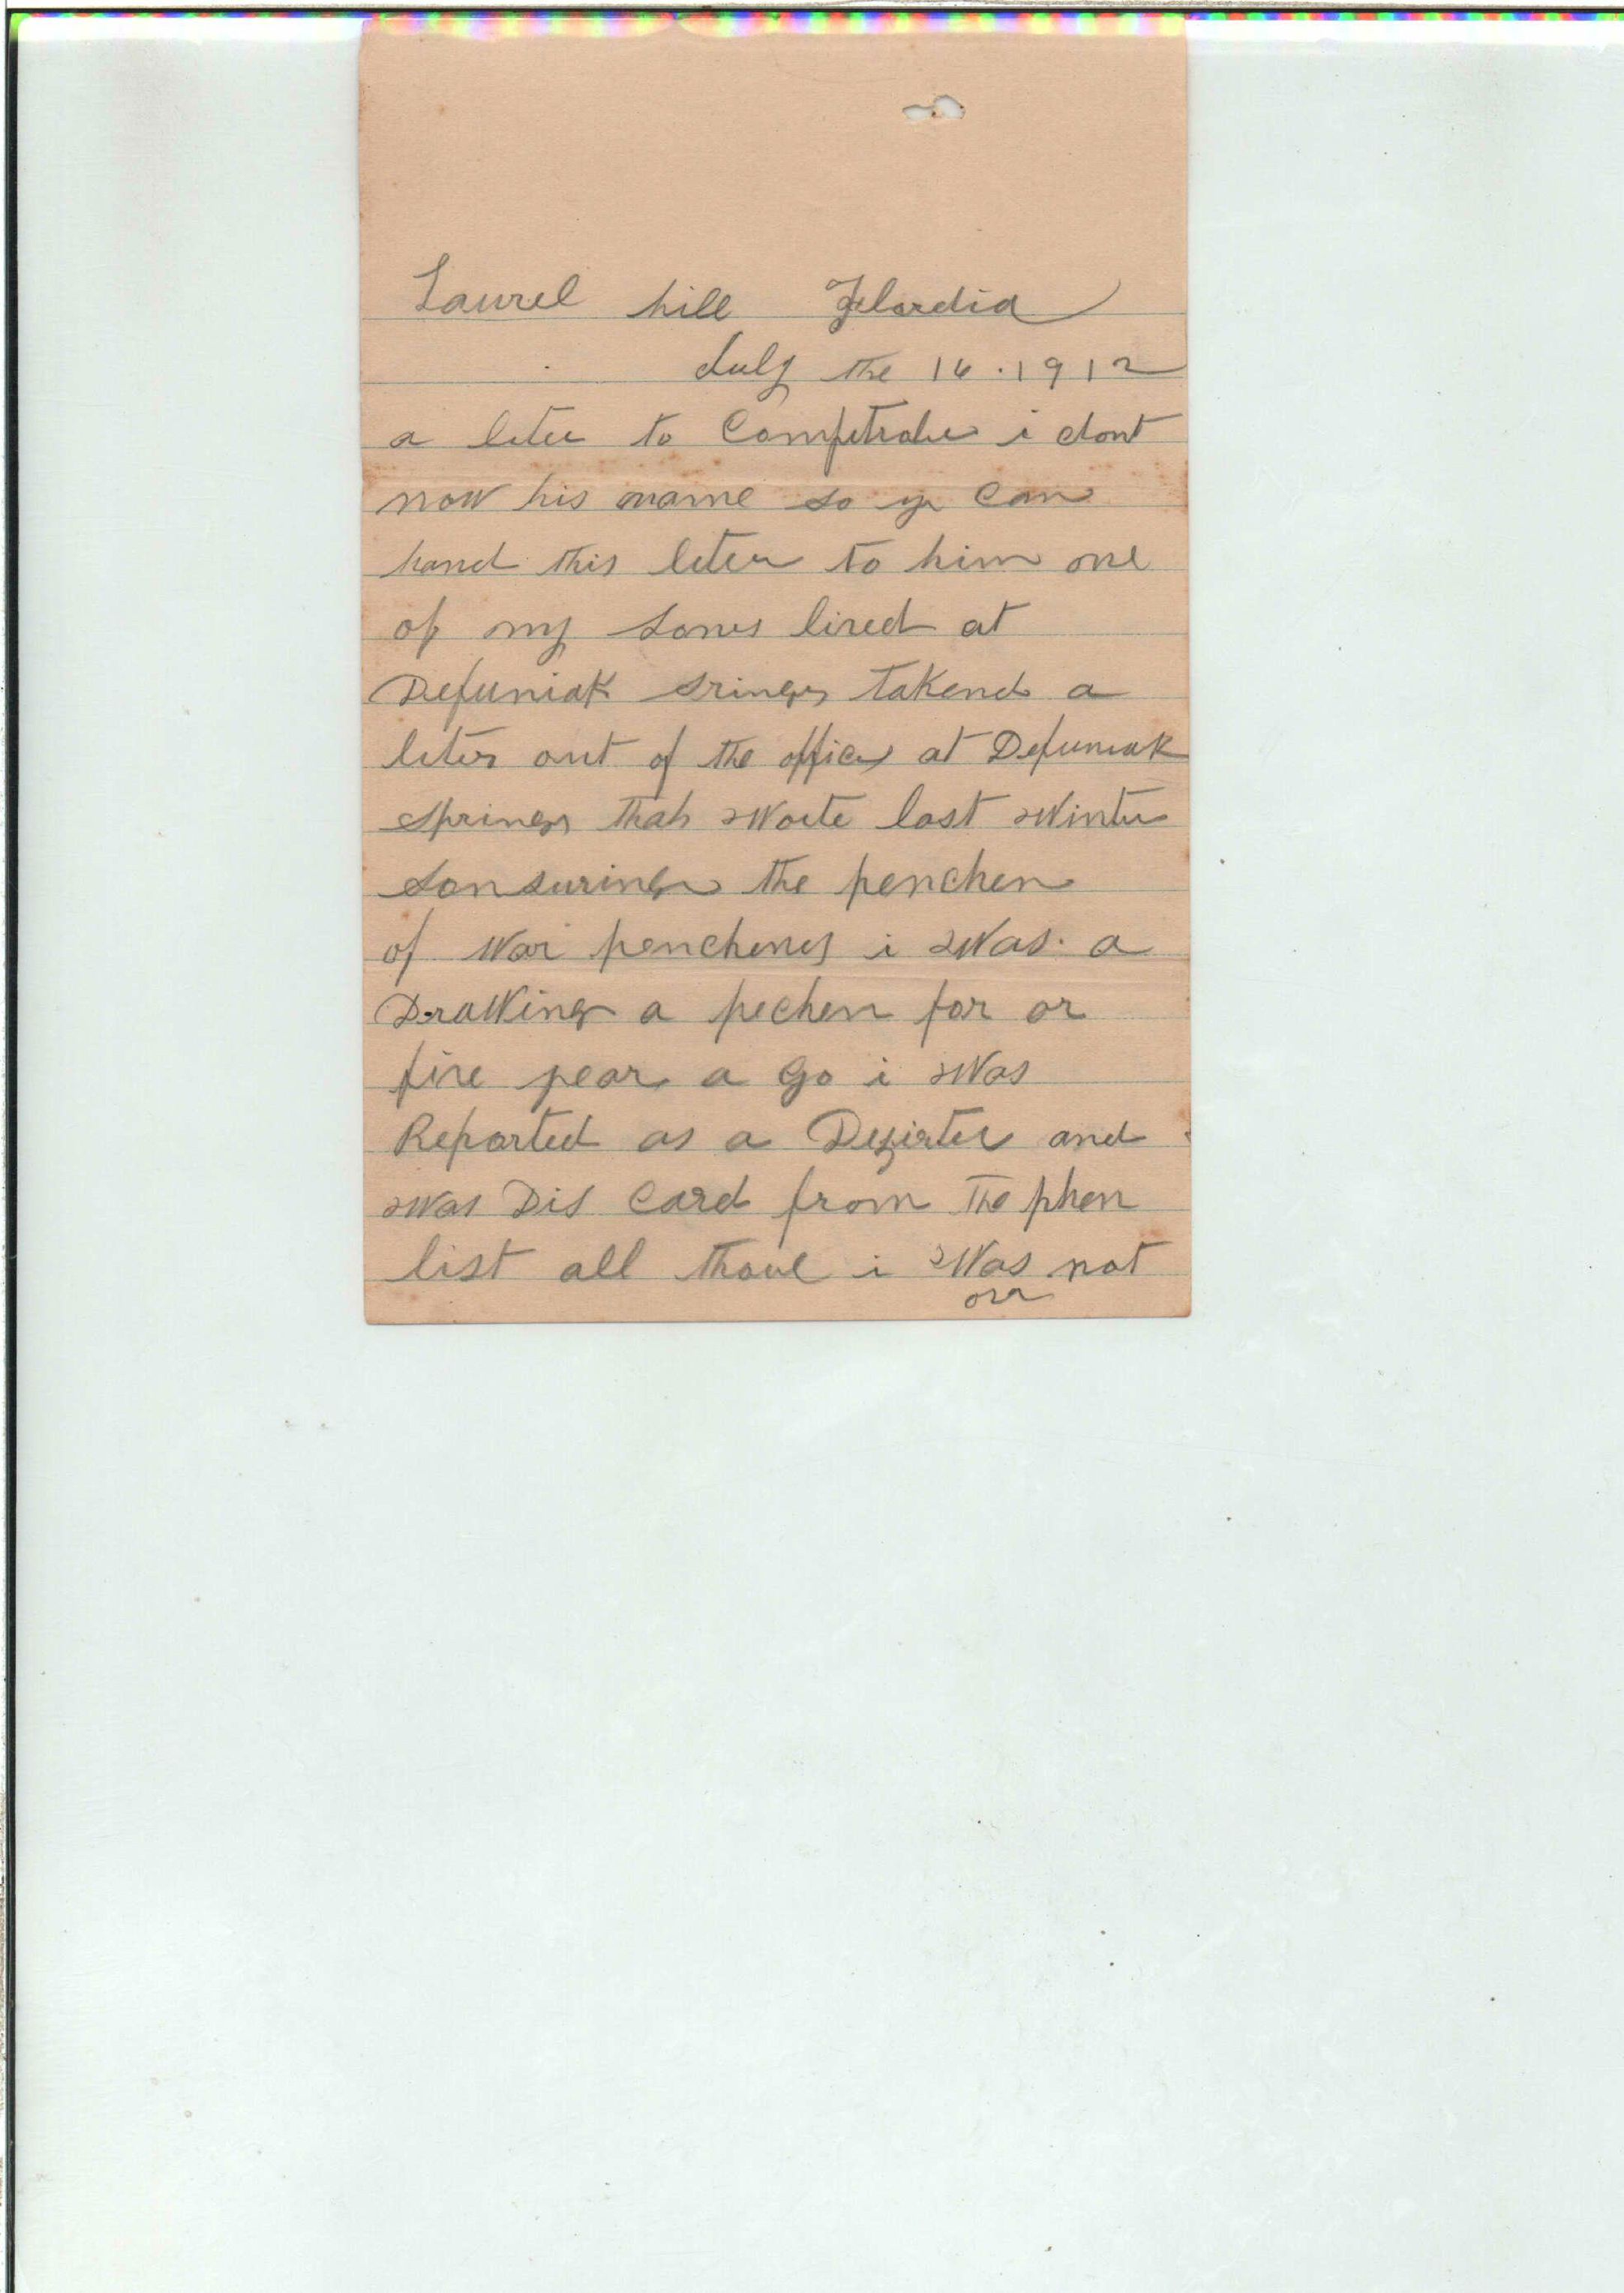 Laurel hill Flordia
July the 16 . 1912
a leter to Comptroler i dont
now his name so yo can
hand this leter to him one
of my sones lived at
Defuniak Srings takend a
leter out of the office at Defuniak
Springs that Wote last Winter
sonsuring the penchen
of War penchenes i Was a
DraWing a pechen for or
five year a go i Was
Reported as a Desirter and
Was Dis Card from the phen
list all thoue i Was not
on